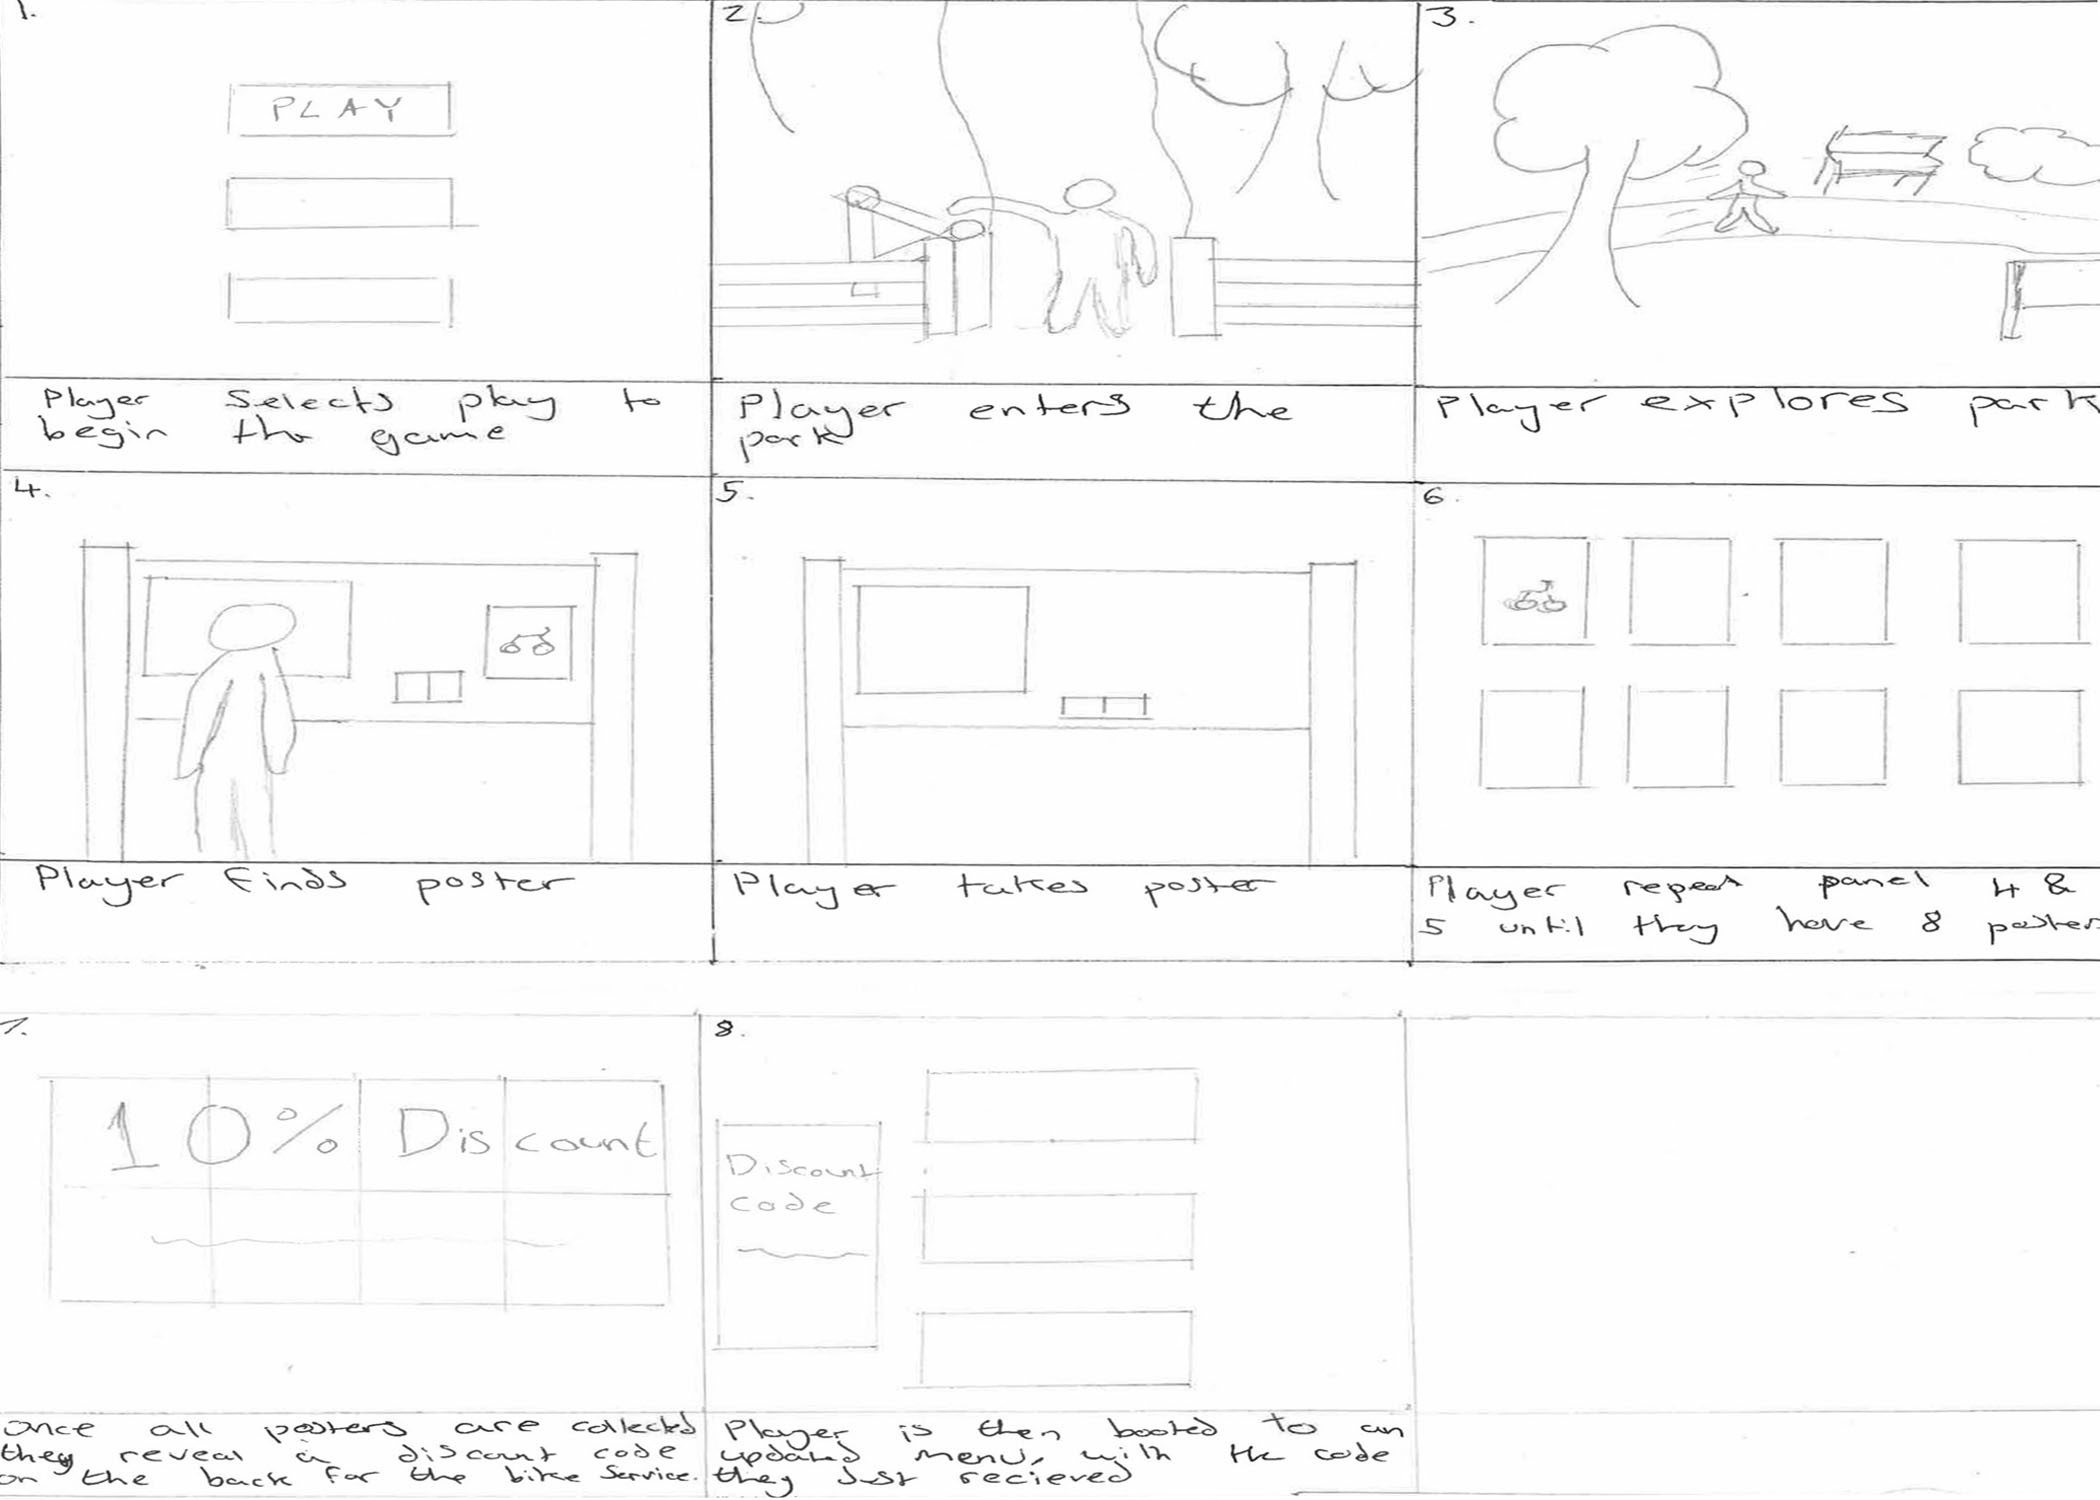 1.
PLAY
Player selects play to
begin the game
2
Player enters the
park
3.
Player explores park
4.
Player finds poster
5.
Player takes poster
6.
Player repeat panel 4 &
5 until they have 8 poster
7.
10% Discount
once all posters are collected
they reveal a discount code
on the back for the bike service.
8.
Discount
code
Player is then booted to an
updated menu, with the code
they just recieved